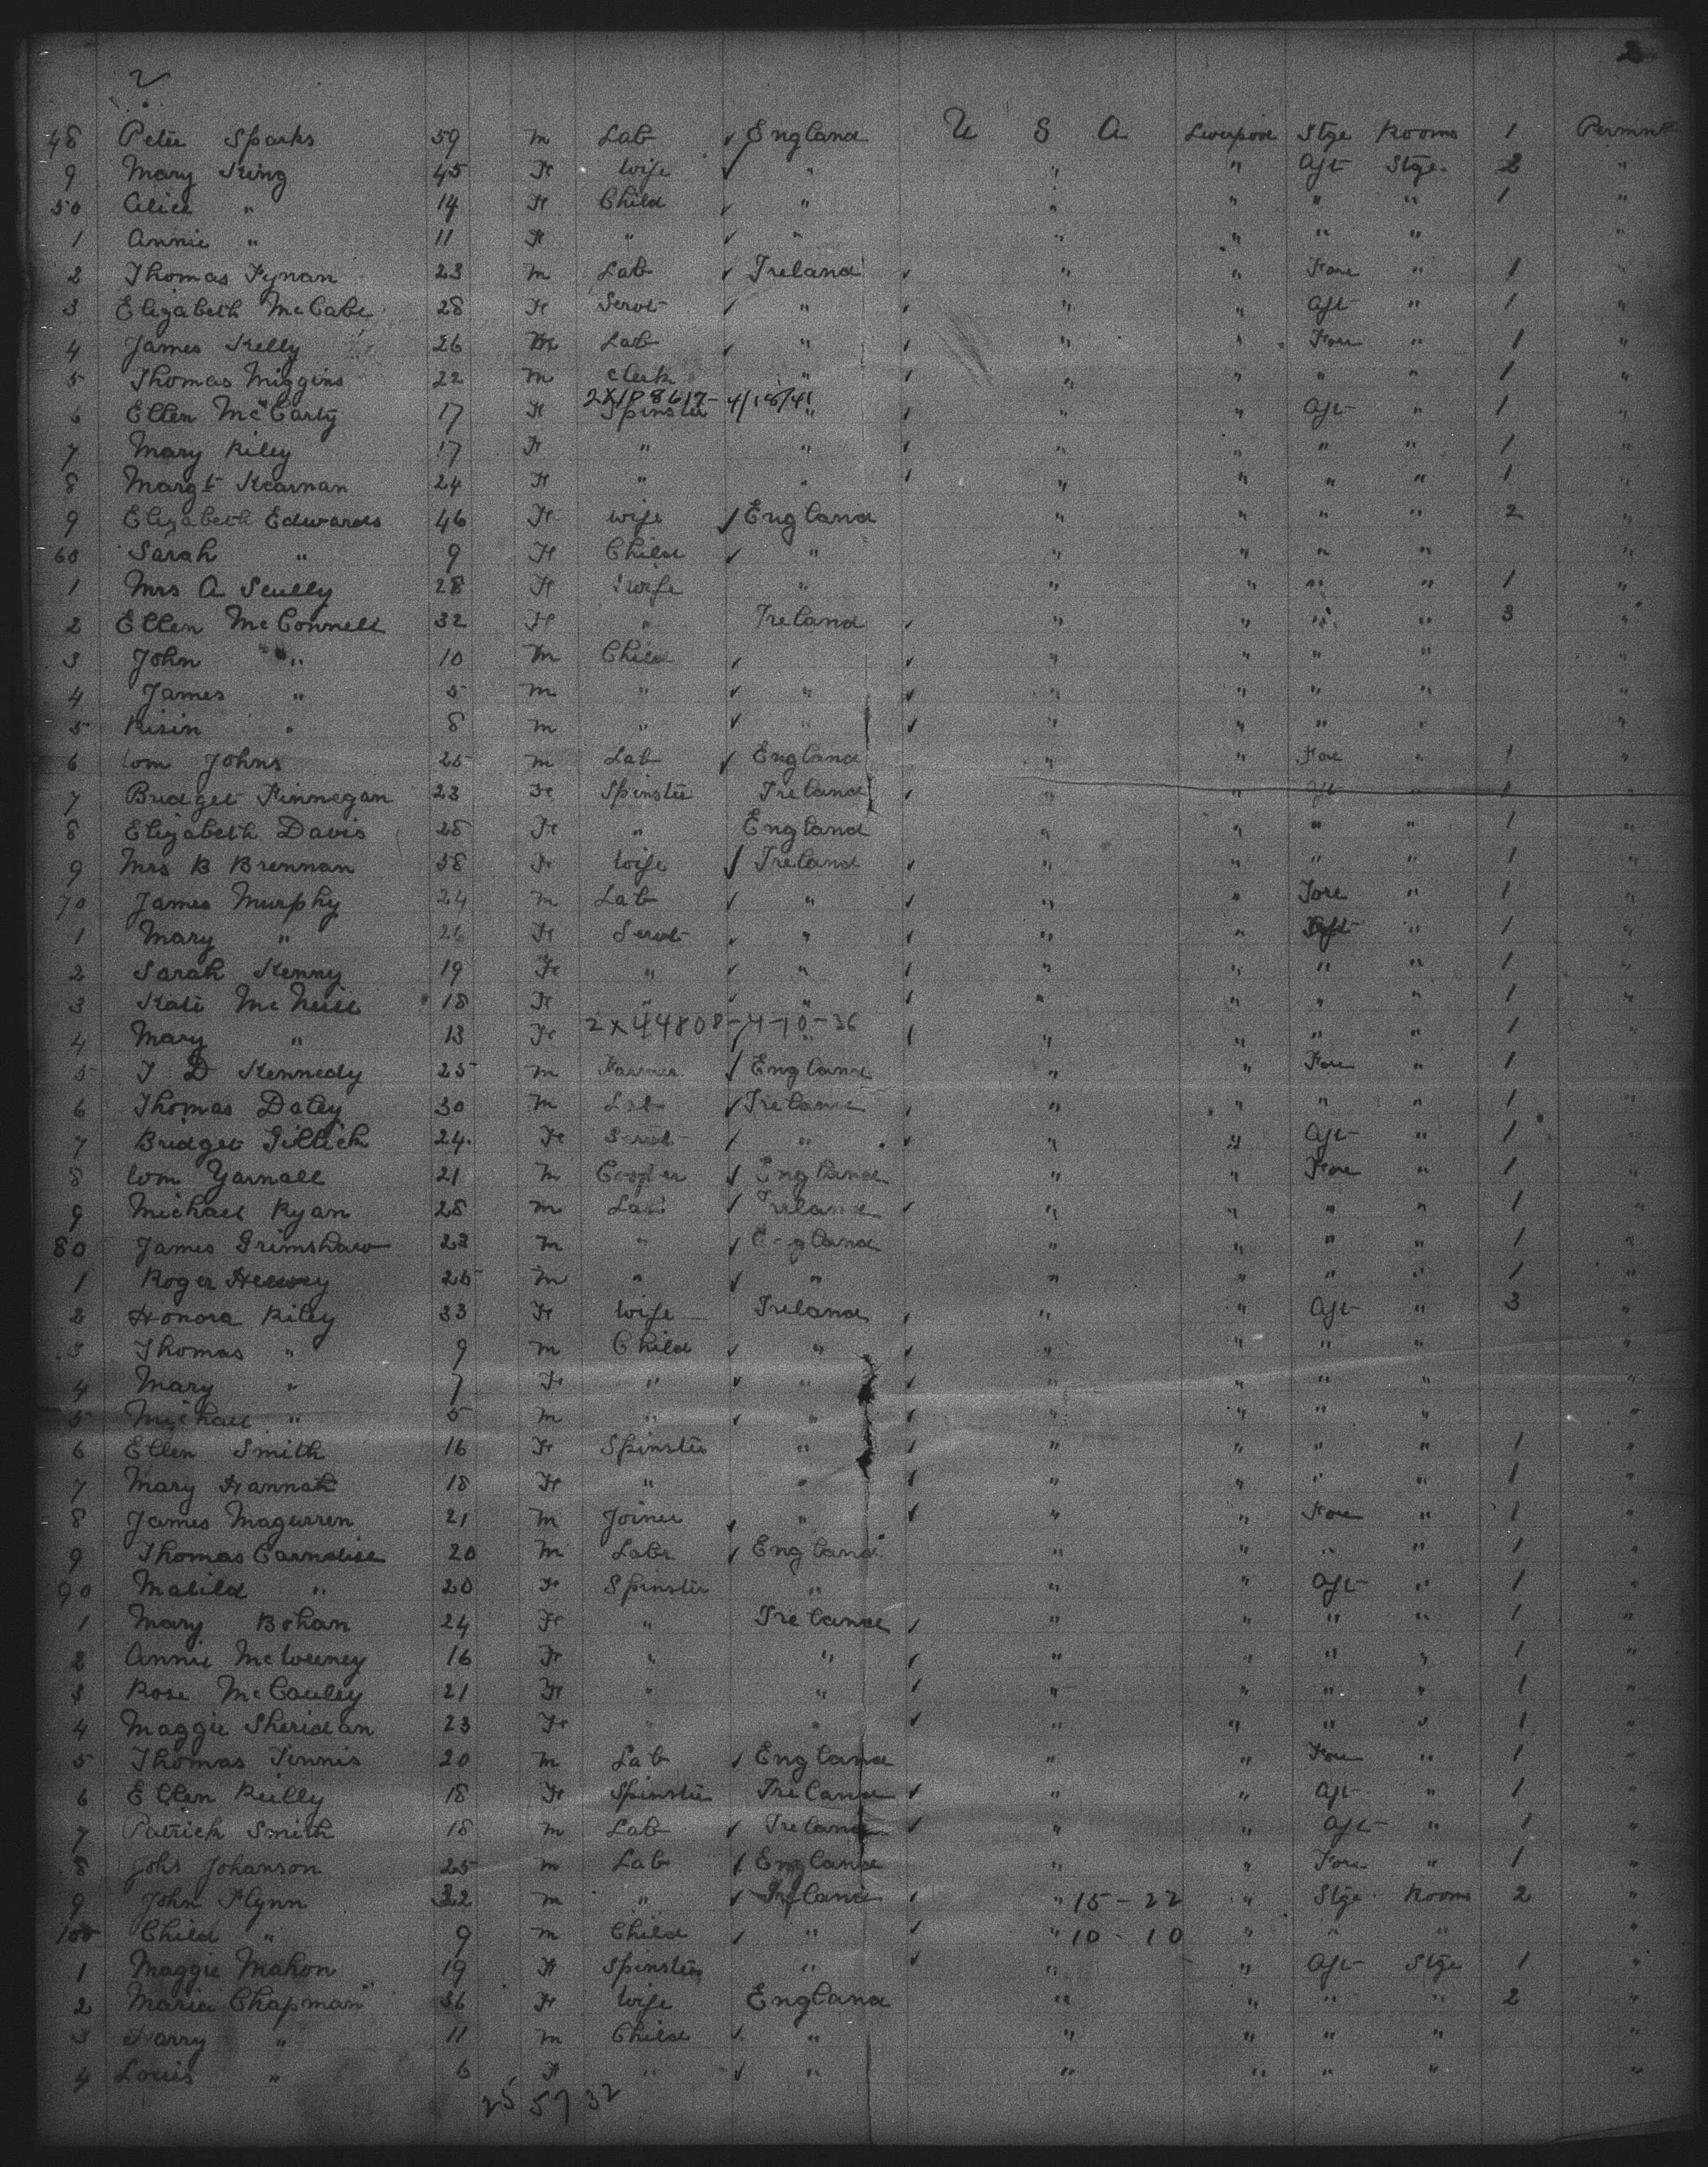 2
2
48 Peter Sparks 59 m Lab ✓ England U S A Liverpool Stge Rooms 1 Permnt
9 Mary King 45 Fe Wife ✓ " " " Aft Stge 2 "
50 Alice " 14 Fe Child ✓ " " " " " 1 "
1 Annie " 11 Fe " ✓ " " " " " "
2 Thomas Fynan 23 m Lab ✓ Ireland ✓ " " Fore " 1 "
3 Elizabeth McCabe 28 Fe Servt ✓ " ✓ " " Aft " 1 "
4 James Kelly 26 m Lab ✓ " ✓ " " Fore " 1 "
5 Thomas Miggins 22 m Clerk " ✓ " " " " 1 "
2X108617- 4/18/41
6 Ellen McCarty 17 Fe Spinster " ✓ " " Aft " 1 "
7 Mary Riley 17 Fe " " ✓ " " " " 1 "
8 Margt Kearnan 24 Fe " " ✓ " " " " 1 "
9 Elizabeth Edwards 46 Fe Wife ✓ England " " " " 2 "
60 Sarah " 9 Fe Child ✓ " " " " " "
1 Mrs A Scully 28 Fe Wife " " " " " 1 "
2 Ellen McConnell 32 Fe " Ireland ✓ " " " " 3 "
3 John " 10 m Child ✓ ✓ " " " " "
4 James " 5 m " ✓ " ✓ " " " "
5 8 m " ✓ " ✓ " " " " "
6 Wm Johns 25 m Lab ✓ England " " Fore " 1 "
7 Bridget Finnegan 23 Fe Spinster Ireland ✓ " " Aft " 1 "
8 Elizabeth Davis 28 Fe " England " " " " 1 "
9 Mrs B Brennan 58 Fe Wife ✓ Ireland ✓ " " " " 1 "
70 James Murphy 24 m Lab ✓ " ✓ " " Fore " 1 "
1 Mary " 26 Fe Servt ✓ " ✓ " " Aft " 1 "
2 Sarah Kenny 19 Fe " ✓ " ✓ " " " " 1 "
3 Kate McNeill 18 Fe " ✓ " ✓ " " " " 1 "
2X44808-4-10-36
4 Mary " 13 Fe ✓ " ✓ " " " " 1 "
5 J D Kennedy 25 m Farmer ✓ England " " Fore " 1 "
6 Thomas Daley 30 m Lab ✓ Ireland ✓ " " " " 1 "
7 Bridget Gillick 24 Fe Servt ✓ " ✓ " " Aft " 1 "
8 Wm Yarnall 21 m Cooper ✓ England " " Fore " 1 "
9 Michael Ryan 28 m Lab ✓ Ireland ✓ " " " " 1 "
80 James Grimshaw 23 m " ✓ England " " " " 1 "
1 Roger 25 m " ✓ " " " " " 1 "
2 Honora Riley 33 Fe Wife Ireland ✓ " " Aft " 3 "
3 Thomas " 9 m Child ✓ " ✓ " " " " "
4 Mary " 7 Fe " ✓ " ✓ " " " " "
5 Michael " 5 m " ✓ " ✓ " " " " "
6 Ellen Smith 16 Fe Spinster " ✓ " " " " 1 "
7 Mary Hannah 18 Fe " " ✓ " " " " 1 "
8 James Magurren 21 m Joiner ✓ " ✓ " " Fore " 1 "
9 Thomas 20 m Labr ✓ England " " " " 1 "
90 Matild " 20 Fe Spinster " " " Aft " 1 "
1 Mary Bohan 24 Fe " Ireland ✓ " " " " 1 "
2 Annie McWeeney 16 Fe " " ✓ " " " " 1 "
3 Rose McCauley 21 Fe " " ✓ " " " " 1 "
4 Maggie Sheridan 23 Fe " " ✓ " " " " 1 "
5 Thomas Tinnis 20 m Lab ✓ England " " Fore " 1 "
6 Ellen Reilly 18 Fe Spinster Ireland ✓ " " Aft " 1 "
7 Patrick Smith 18 m Lab ✓ Ireland ✓ " " Aft " 1 "
8 Johs Johanson 25 m Lab ✓ England " " Fore " 1 "
9 John Flynn 32 m " ✓ Ireland ✓ " 15-22 " Stge Rooms 2 "
100 Child " 9 m Child ✓ " ✓ " 10-10 " " " "
1 Maggie Mahon 19 Fe Spinster " ✓ " " Aft Stge 1 "
2 Maria Chapman 36 Fe Wife England " " " " 2 "
3 Harry " 11 m Child ✓ " " " " " "
4 Louis " 6 Fe " ✓ " " " " " "
25 57 32